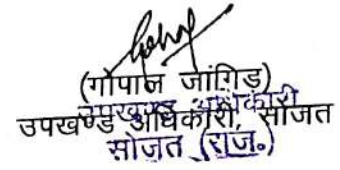 (गोपाल जांगिड)
उपखण्ड अधिकारी
उपखण्ड अधिकारी, सोजत
सोजत (राज.)